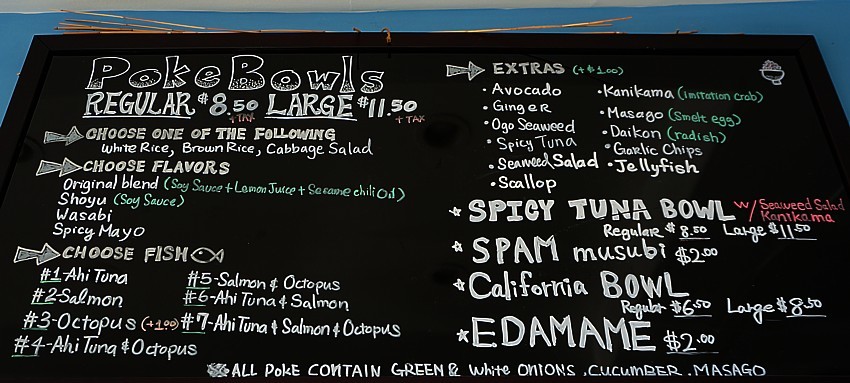 Poke Bowls
REGULAR $8.50 +TAX LARGE $11.50 +TAX
CHOOSE ONE OF THE FOLLOWING
White Rice, Brown Rice, Cabbage Salad
CHOOSE FLAVORS
Original blend (Soy Sauce + Lemon Juice + Sesame chili Oil)
Shoyu (Soy Sauce)
Wasabi
Spicy Mayo
CHOOSE FISH
#1-Ahi Tuna
#2-Salmon
#3-Octopus (+1.00)
#4-Ahi Tuna & Octopus
#5-Salmon & Octopus
#6-Ahi Tuna & Salmon
#7-Ahi Tuna & Salmon & Octopus
EXTRAS (+$1.00)
• Avocado
• Ginger
• Ogo Seaweed
• Spicy Tuna
• Seaweed Salad
• Scallop
• Kanikama (imitation crab)
• Masago (Smelt egg)
• Daikon (radish)
• Garlic Chips
• Jellyfish
SPICY TUNA BOWL w/ Seaweed Salad
Kanikama
Regular $8.50 Large $11.50
SPAM musubi $2.00
California BOWL
Regular $6.50 Large $8.50
EDAMAME $2.00
ALL POKE CONTAIN GREEN & White ONIONS, CUCUMBER, MASAGO